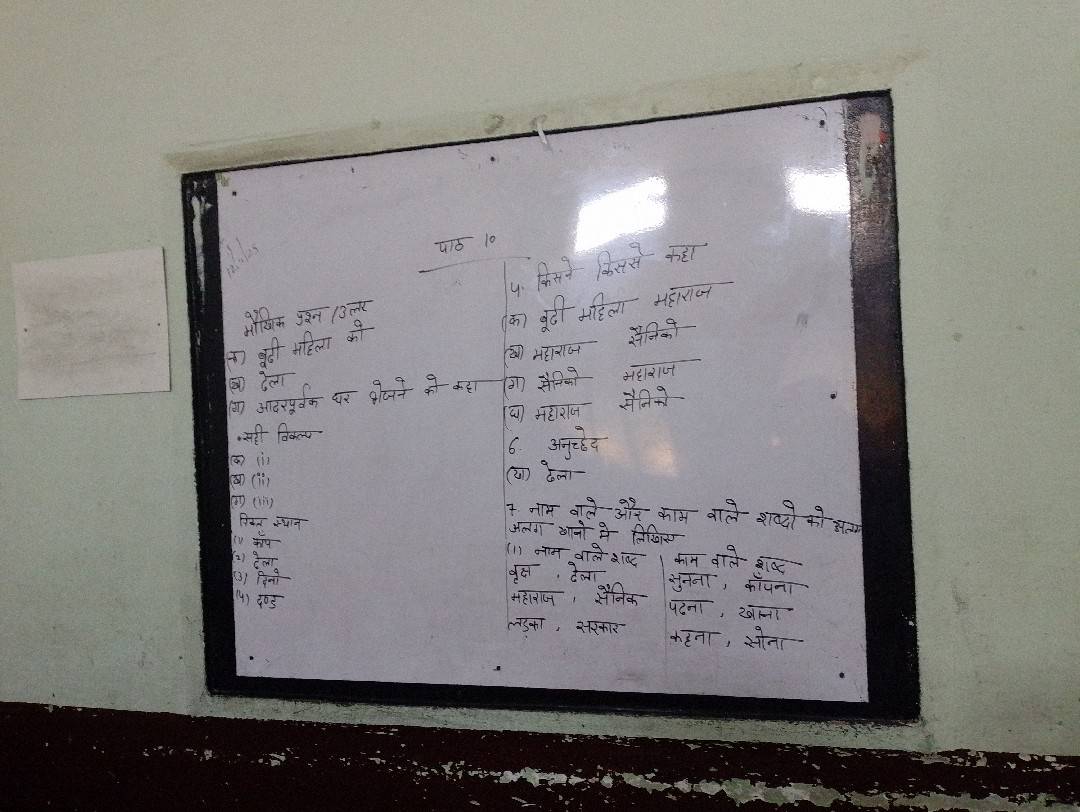 पाठ 10
मौखिक प्रश्न /उत्तर
(क) बूढी महिला को
(ख) ढेला
(ग) आदरपूर्वक घर भेजने को कहा
•सही विकल्प
(क) (i)
(ख) (ii)
(ग) (iii)
रिक्त स्थान
(1) काँप
(2) ढेला
(3) दिनो
(4) दण्ड
5. किसने किससे कहा
(क) बूढी महिला महाराज
(ख) महाराज सैनिको
(ग) सैनिको महाराज
(घ) महाराज सैनिको
6. अनुच्छेद
(ख) ढेला
7 नाम वाले और काम वाले शब्दो को अलग
अलग खानो मे लिखिए
(1) नाम वाले शब्द | काम वाले शब्द
वृक्ष , ढेला | सुनना , काँपना
महाराज , सैनिक | पढना , खाना
लड़का , सरकार | कहना , सोना